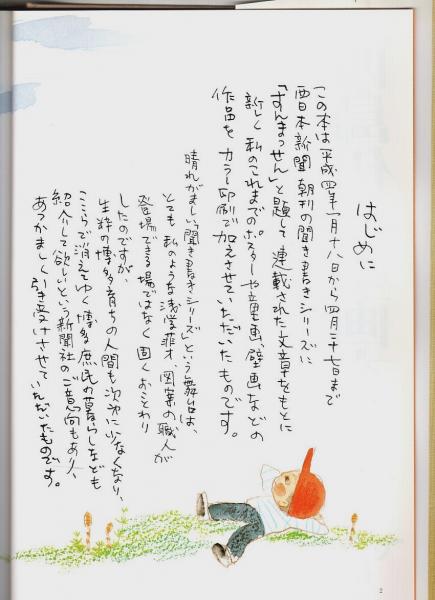 はじめに
この本は平成四年一月十八日から四月二十七日まで
西日本新聞 朝刊の聞き書きシリーズに
「すんまっせん」と題して連載された文章をもとに
新しく私のこれまでのポスターや童画、壁画などの
作品を カラー印刷で加えさせていただいたものです。
晴れがましい「聞き書きシリーズ」という舞台は、
とても 私のような浅学菲才、図案の職人が
登場できる場ではなく固くおことわり
したのですが
生粋の博多育ちの人間も次次に少なくなり、
ここらで消えゆく博多庶民の暮らしなども
紹介して欲しいという新聞社のご意向もあり、
あつかましく引き受けさせていただいたものです。
2